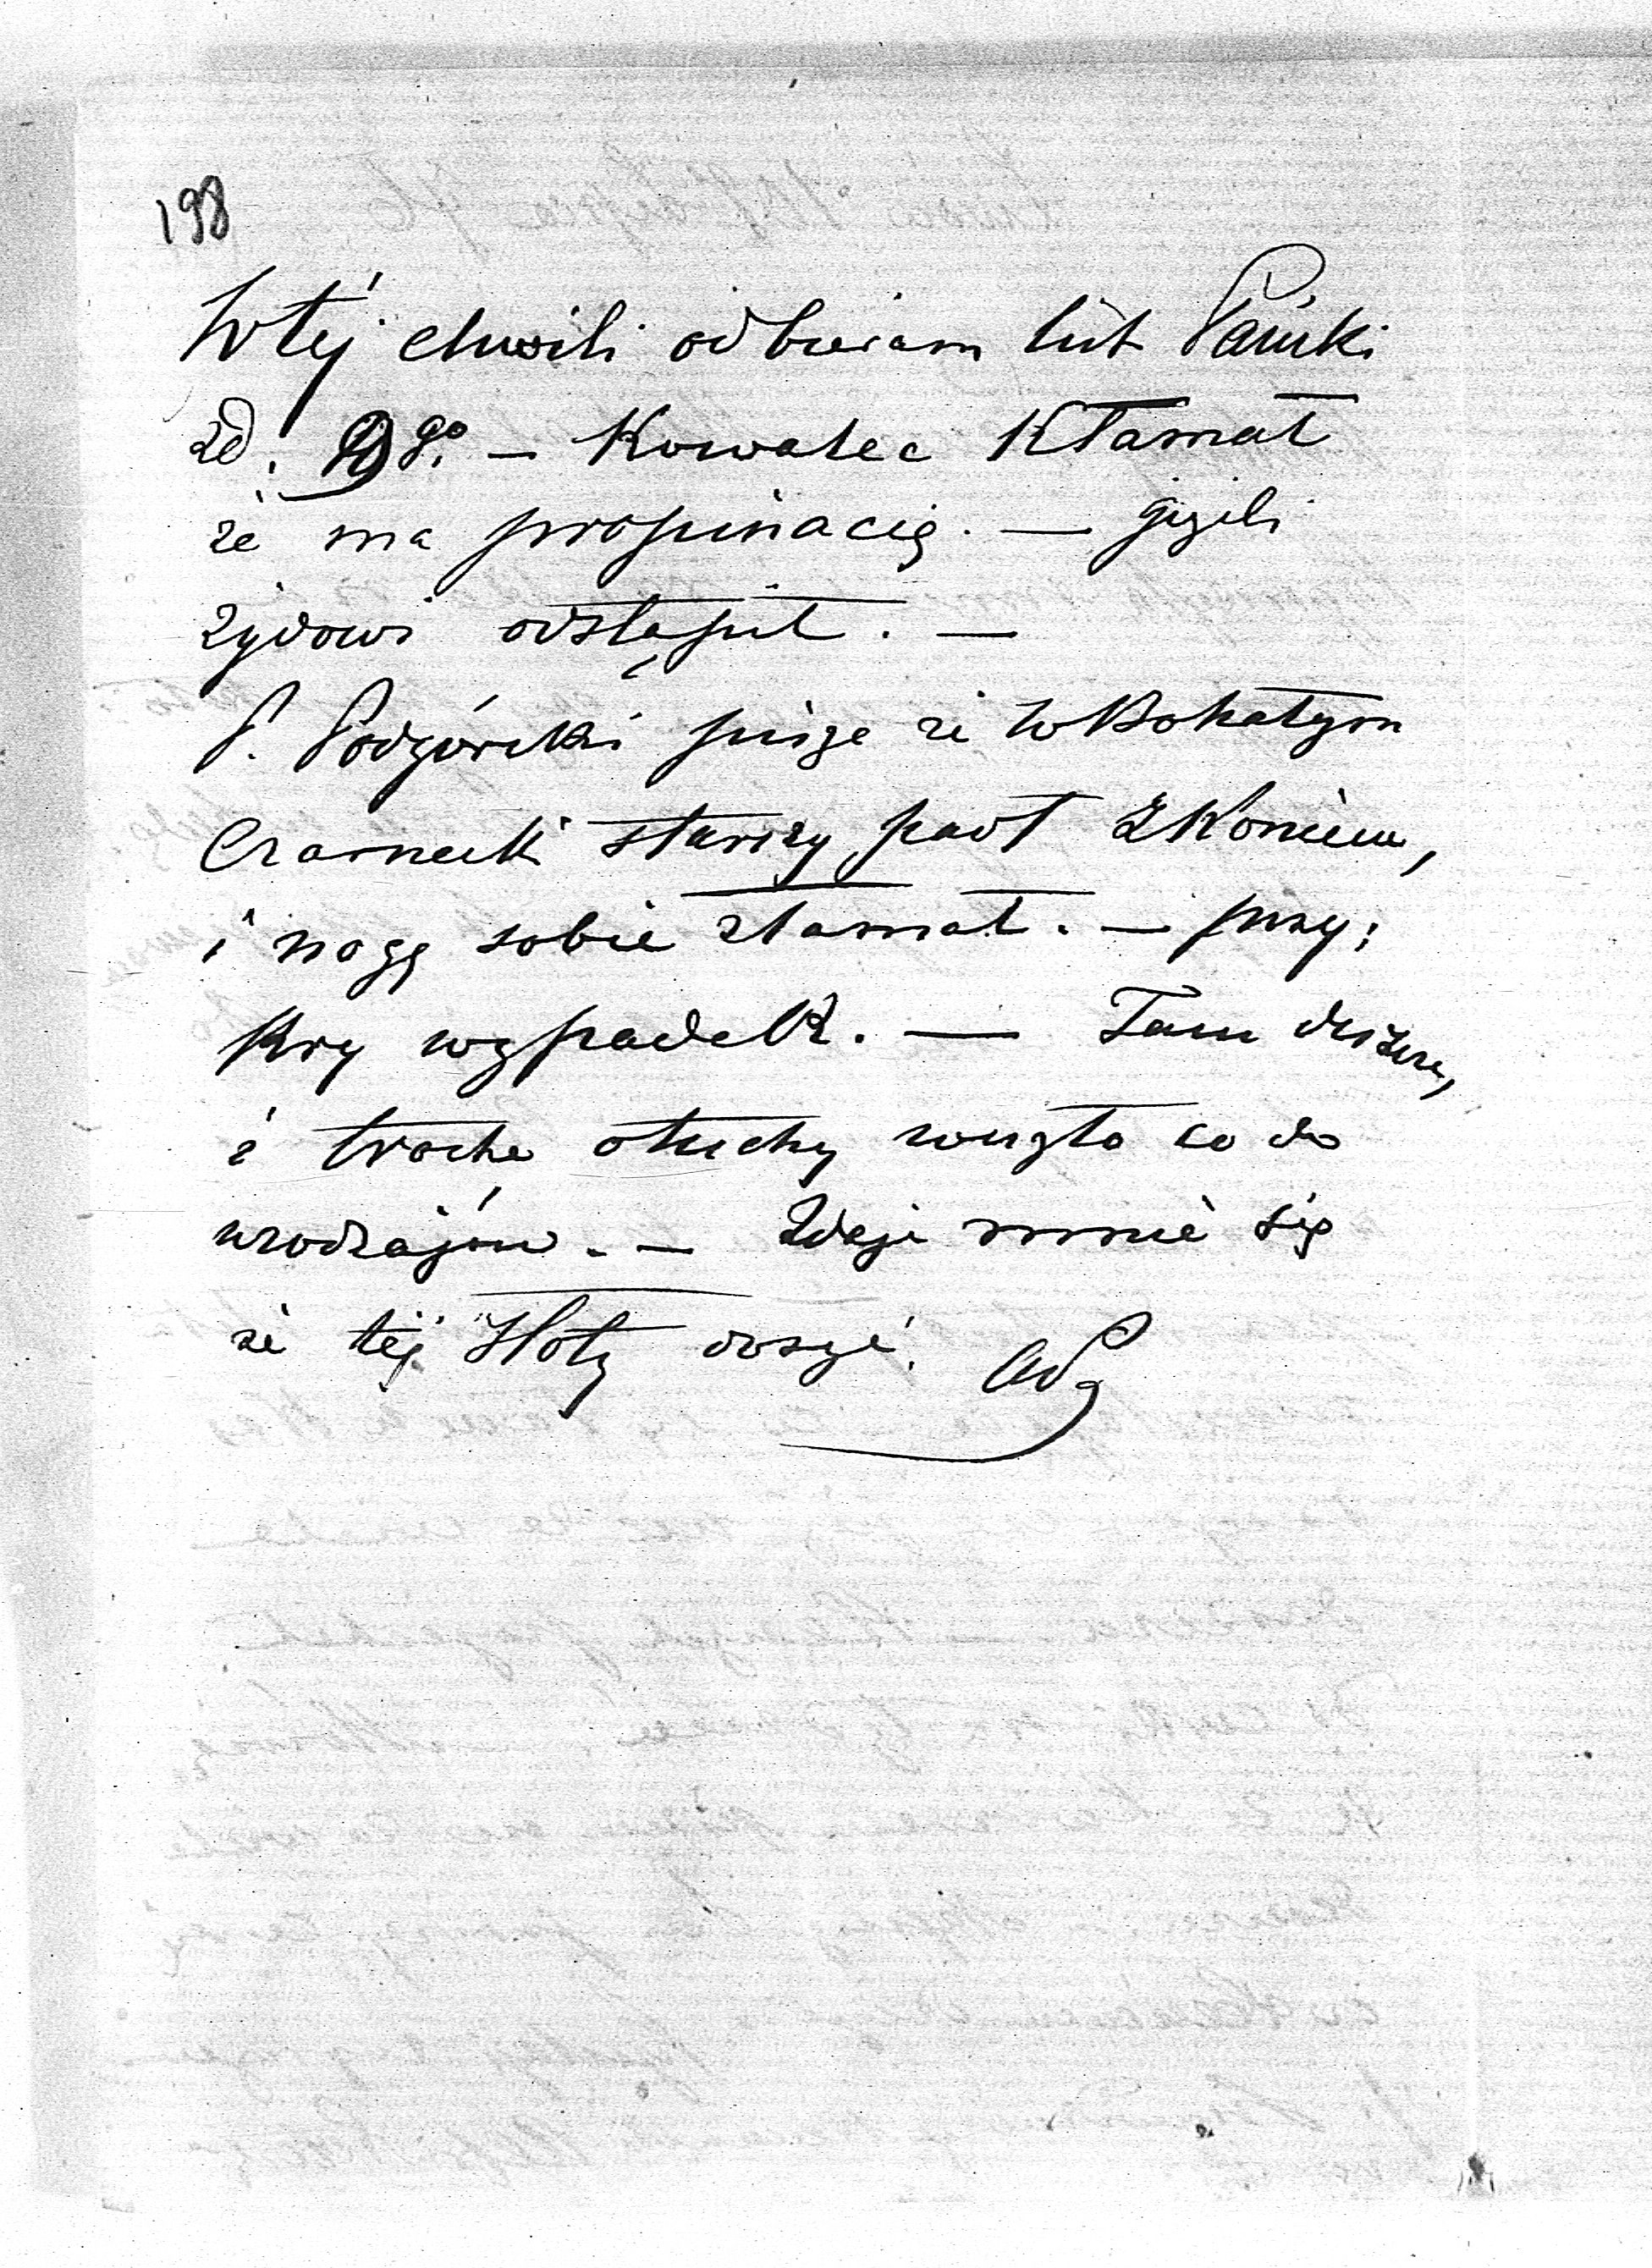 198
W téj chwili odbieram list Pański
zd. 9go. — Kowalec Kłamał
że ma propinacię. — jizeli
żydowi odstąpił. —
P. Podgórski pisze że w Rohatyn
Czarnecki starszy padł z Koniem,
i nogę sobie złamał. — przy:
kry wypadek. — Tam deszcze,
i troche otuchy weszło co do
urodzajów. — Zdaje mnie się
że téj słoty dosyć.